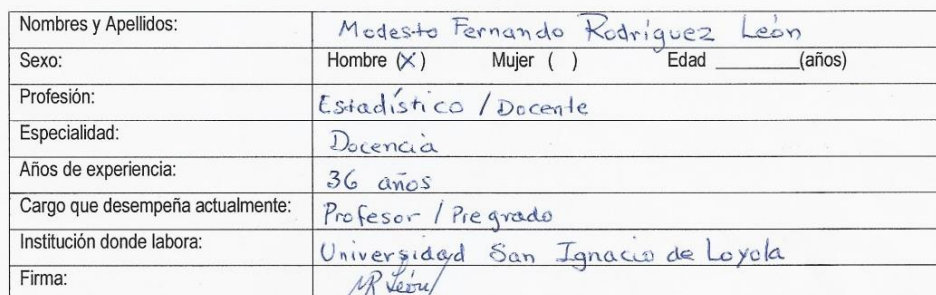 Nombres y Apellidos: Modesto Fernando Rodríguez León
Sexo: Hombre (X) Mujer ( ) Edad ________(años)
Profesión: Estadístico / Docente
Especialidad: Docencia
Años de experiencia: 36 años
Cargo que desempeña actualmente: Profesor / Pregrado
Institución donde labora: Universidad San Ignacio de Loyola
Firma: MR León